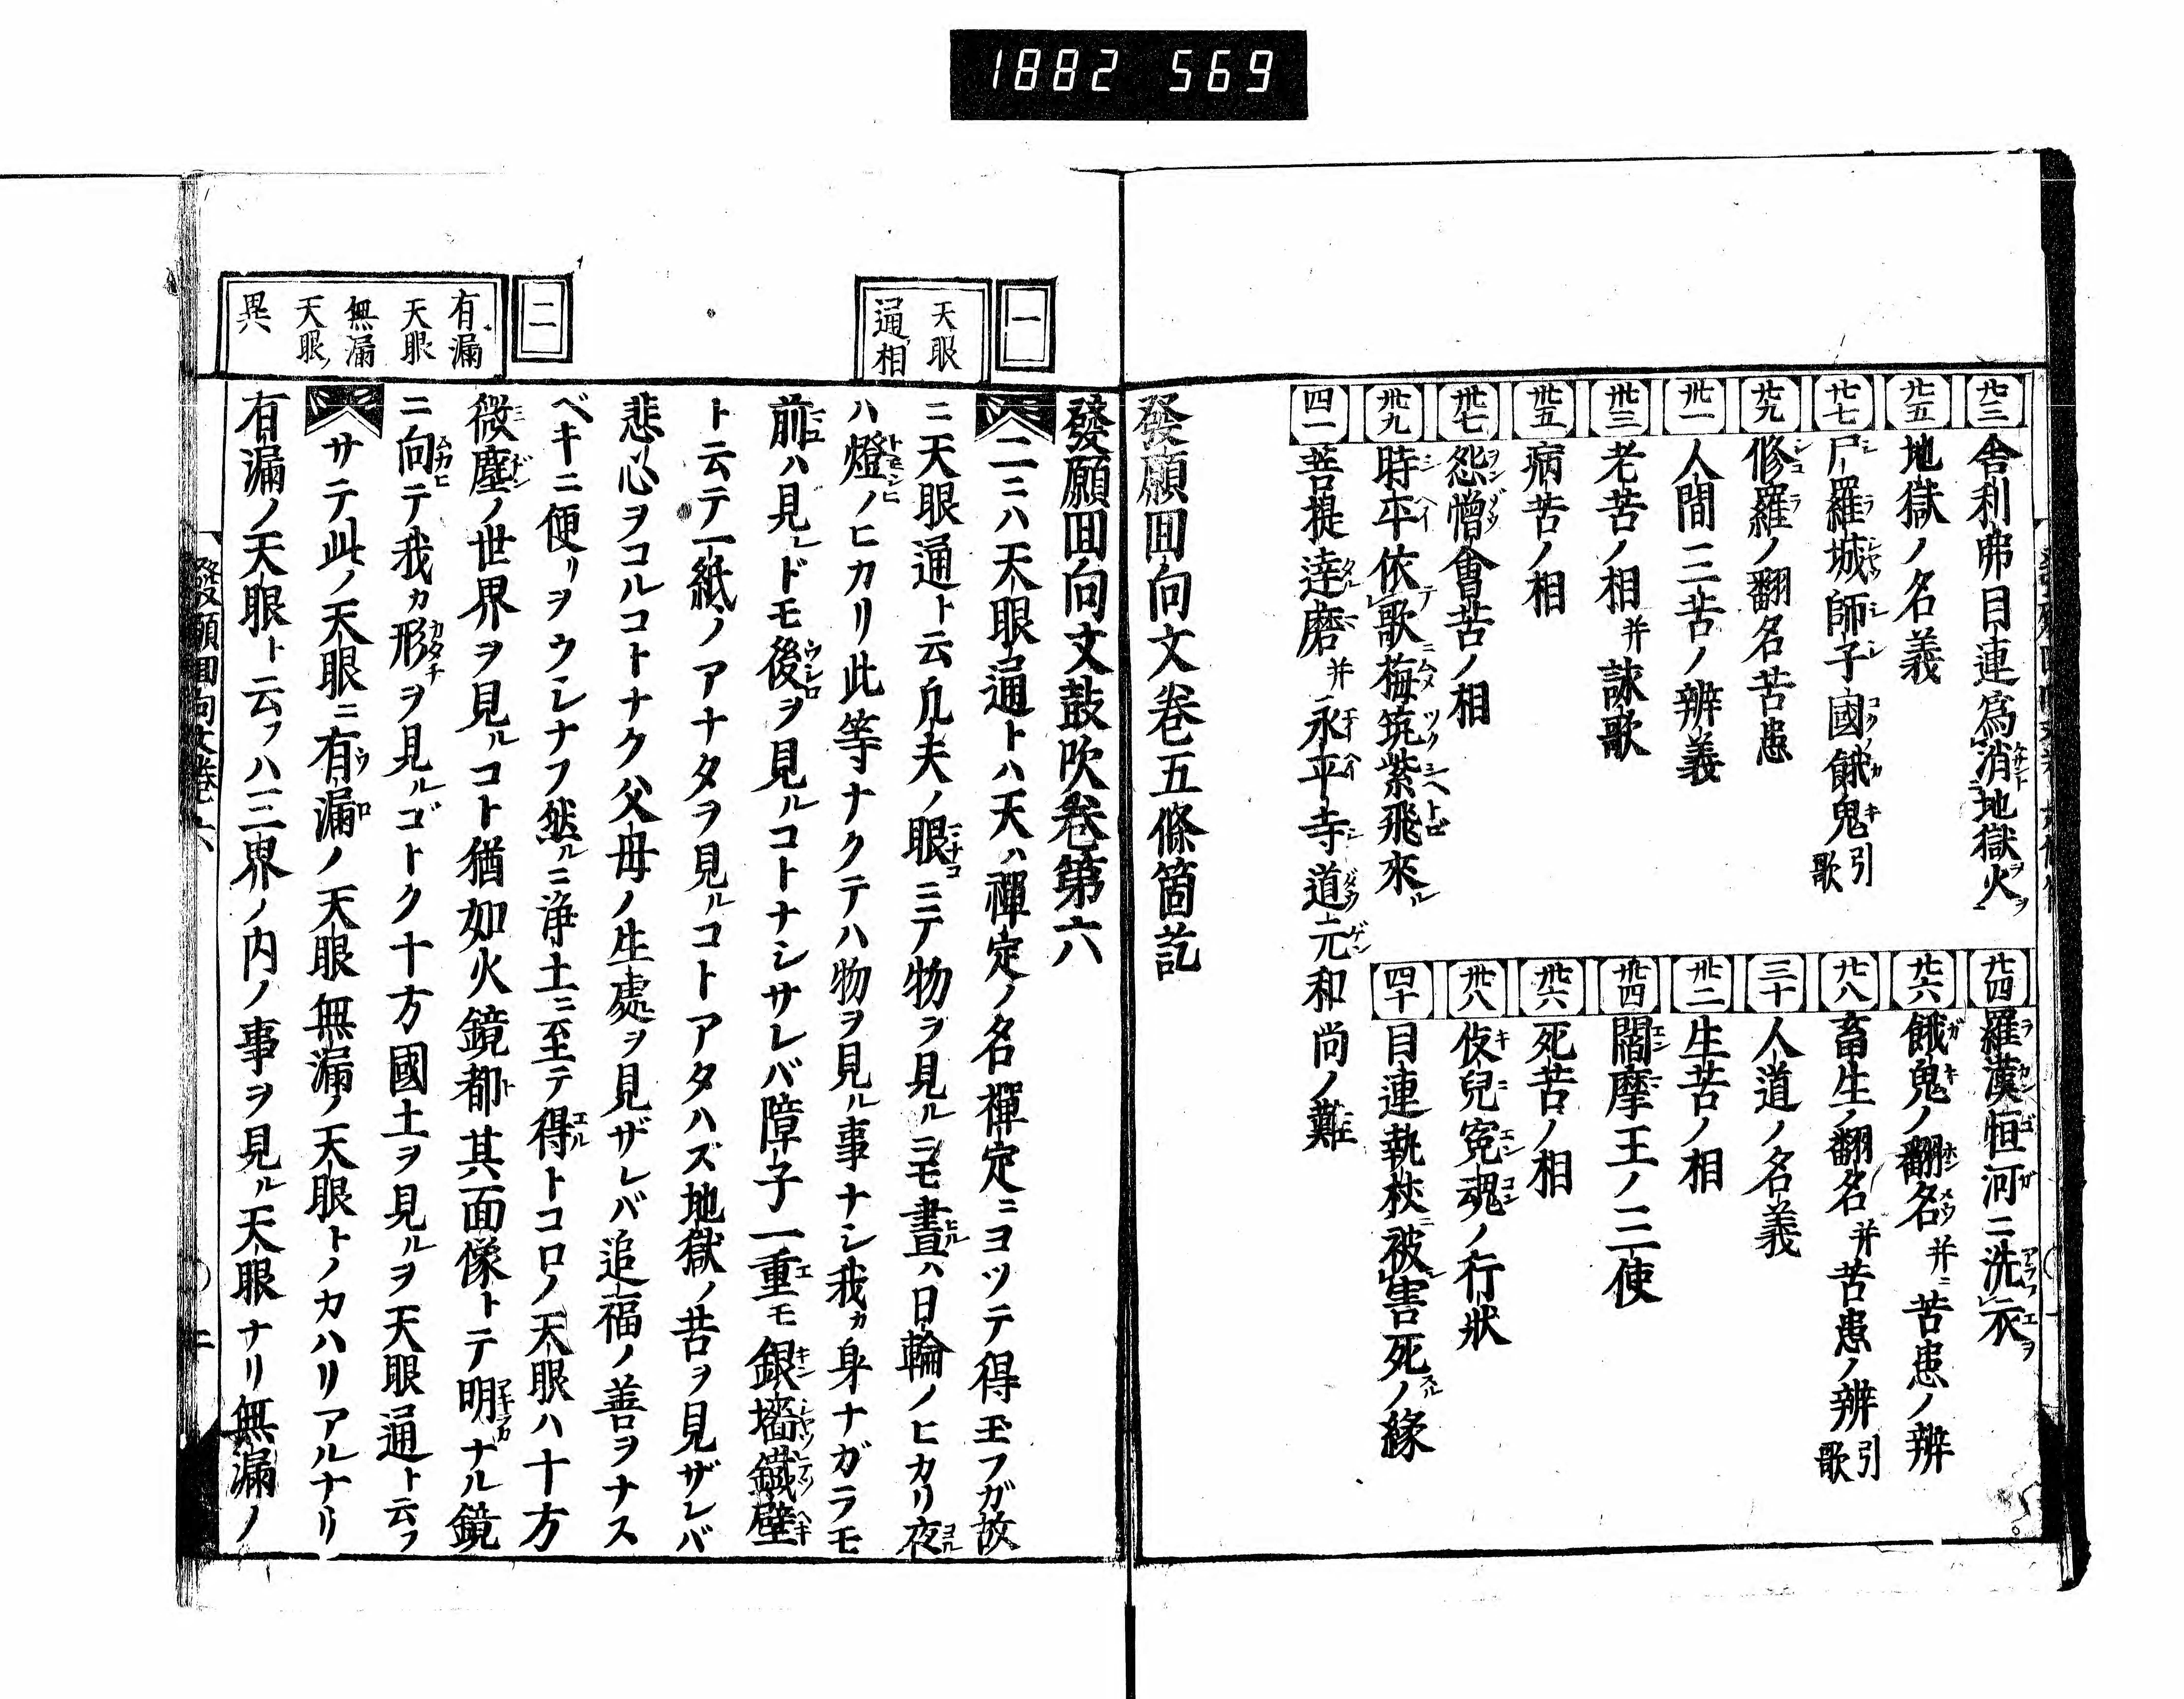 1882 569
廿三 舎利弗目連為消地獄火
廿四 羅漢恒河ニ洗衣
廿五 地獄ノ名義
廿六 餓鬼ノ翻名并ニ苦患ノ辨
廿七 尸羅城師子國餓鬼ノ引歌
廿八 畜生ノ翻名并苦患ノ辨引歌
廿九 修羅ノ翻名苦患
三十 人道ノ名義
卅一 人間三苦ノ辨義
卅二 生苦ノ相
卅三 老苦ノ相并詠歌
卅四 閻摩王ノ三使
卅五 病苦ノ相
卅六 死苦ノ相
卅七 怨憎會苦ノ相
卅八 伎兒寃魂ノ行狀
卅九 時平依歌梅筑紫飛來ル
四十 目連執杖被害死ノ緣
四一 菩提達磨并永平寺道元和尚ノ難
發願囬向文卷五條箇訖
發願囬向文鼓吹卷第六
一
天眼
通相
二ニハ天眼通トハ天ハ禪定ノ名禪定ニヨツテ得玉フガ故
ニ天眼通ト云凡夫ノ眼ニテ物ヲ見ルニモ晝ハ日輪ノヒカリ夜
ハ燈ノヒカリ此等ナクテハ物ヲ見ル事ナシ我カ身ナガラモ
前ハ見レドモ後ヲ見ルコトナシサレバ障子一重モ銀墻鐵壁
ト云テ一紙ノアナタヲ見ルコトアタハズ地獄ノ苦ヲ見ザレバ
悲心ヲコルコトナク父母ノ生處ヲ見ザレバ追福ノ善ヲナス
ベキニ便リヲウシナフ然ルニ淨土ニ至テ得トコロノ天眼ハ十方
微塵ノ世界ヲ見ルコト猶如火鏡都其面像トテ明ナル鏡
ニ向テ我カ形ヲ見ルゴトク十方國土ヲ見ルヲ天眼通ト云フ
二
有漏
天眼
無漏
天眼ノ
異
サテ此ノ天眼ニ有漏ノ天眼無漏ノ天眼トノカハリアルナリ
有漏ノ天眼ト云フハ三界ノ内ノ事ヲ見ル天眼ナリ無漏ノ
發願囬向文卷六